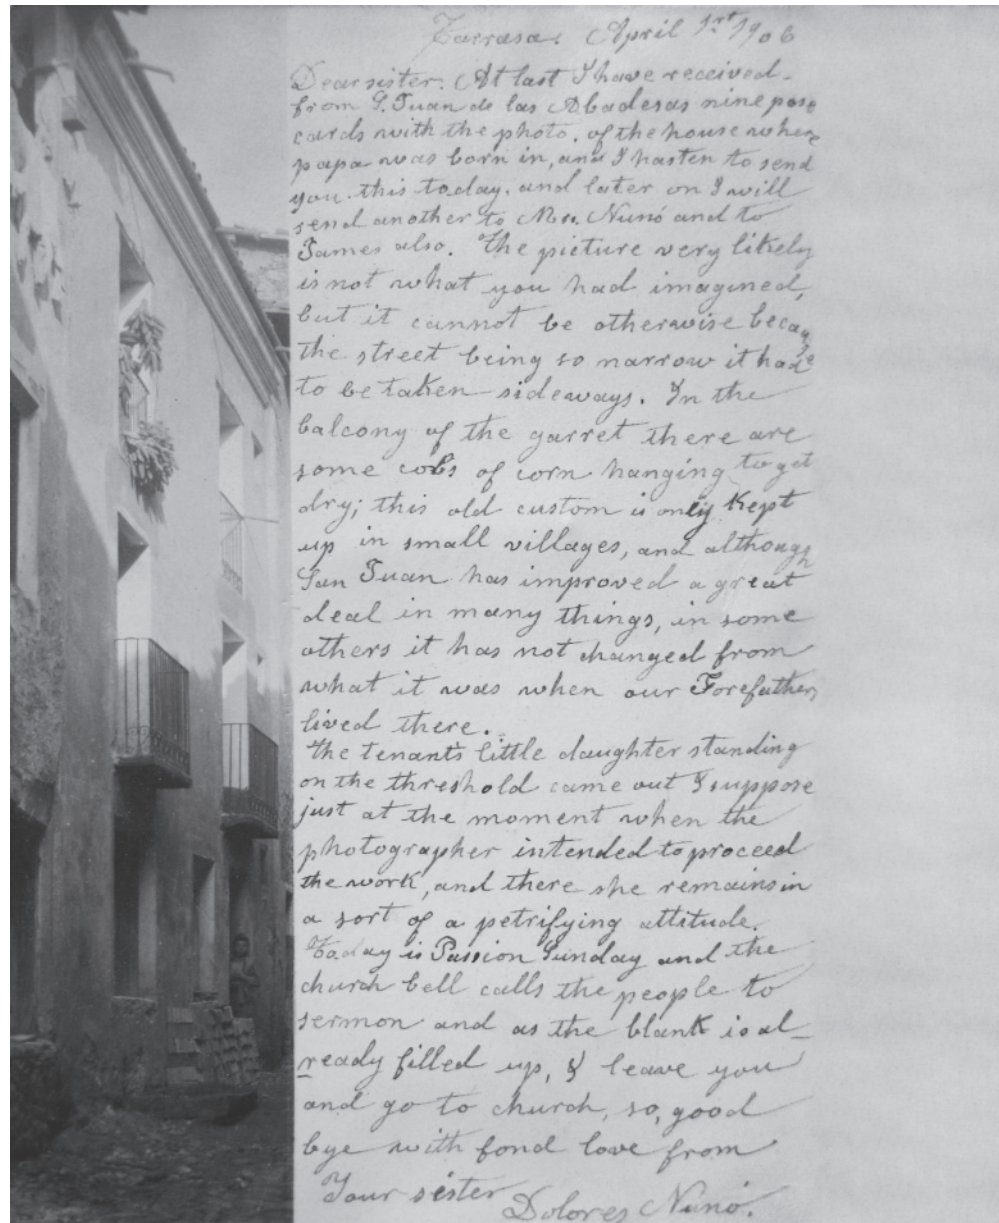 Tarrasa. April 1rst 1906
Dear sister. At last I have received
from S. Juan de las Abadesas nine post
cards with the photo. of the house where
papa was born in, and I hasten to send
you this today. and later on I will
send another to Mrs. Nunó and to
James also. The picture very likely
is not what you had imagined,
but it cannot be otherwise because
the street being so narrow it had
to be taken sideways. In the
balcony of the garret there are
some cobs of corn hanging to get
dry; this old custom is only kept
up in small villages, and although
San Juan has improved a great
deal in many things, in some
others it has not changed from
what it was when our Forefathers
lived there.
The tenant's little daughter standing
on the threshold came out I suppose
just at the moment when the
photographer intended to proceed
the work, and there she remains in
a sort of a petrifying attitude.
Today is Passion Sunday and the
church bell calls the people to
sermon and as the blank is al_
ready filled up, I leave you
and go to church, so, good
bye with fond love from
Your sister Dolores Nunó.